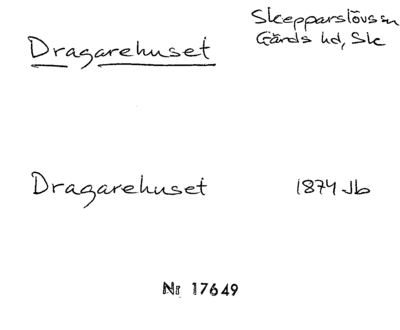 Skepparslövs sn
Dragarehuset
Gärds hd, Sk
Dragarehuset 1874 Jb
Nr 17649